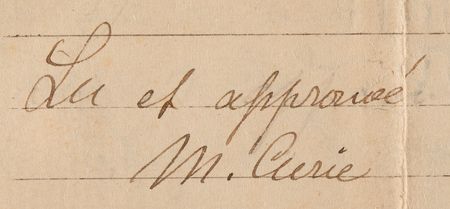 Lu et approuvé
M. Curie